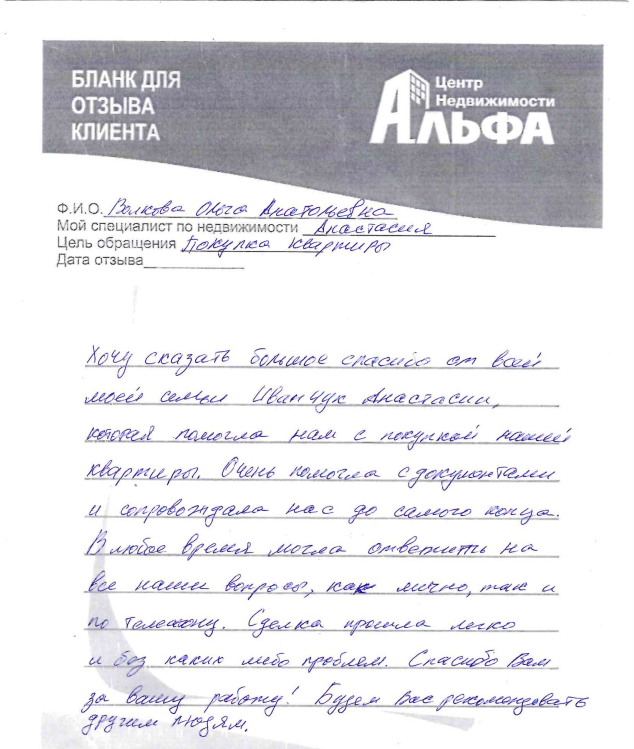 БЛАНК ДЛЯ
ОТЗЫВА
КЛИЕНТА
Центр
Недвижимости
АЛЬФА
Ф.И.О. Волкова Ольга Анатольевна
Мой специалист по недвижимости Анастасия
Цель обращения Покупка квартиры
Дата отзыва
Хочу сказать большое спасибо от всей
моей семьи Иванчук Анастасии,
которая помогла нам с покупкой нашей
квартиры. Очень помогла с документами
и сопровождала нас до самого конца.
В любое время могла ответить на
все наши вопросы, как лично, так и
по телефону. Сделка прошла легко
и без каких либо проблем. Спасибо Вам
за вашу работу! Будем Вас рекомендовать
другим людям.